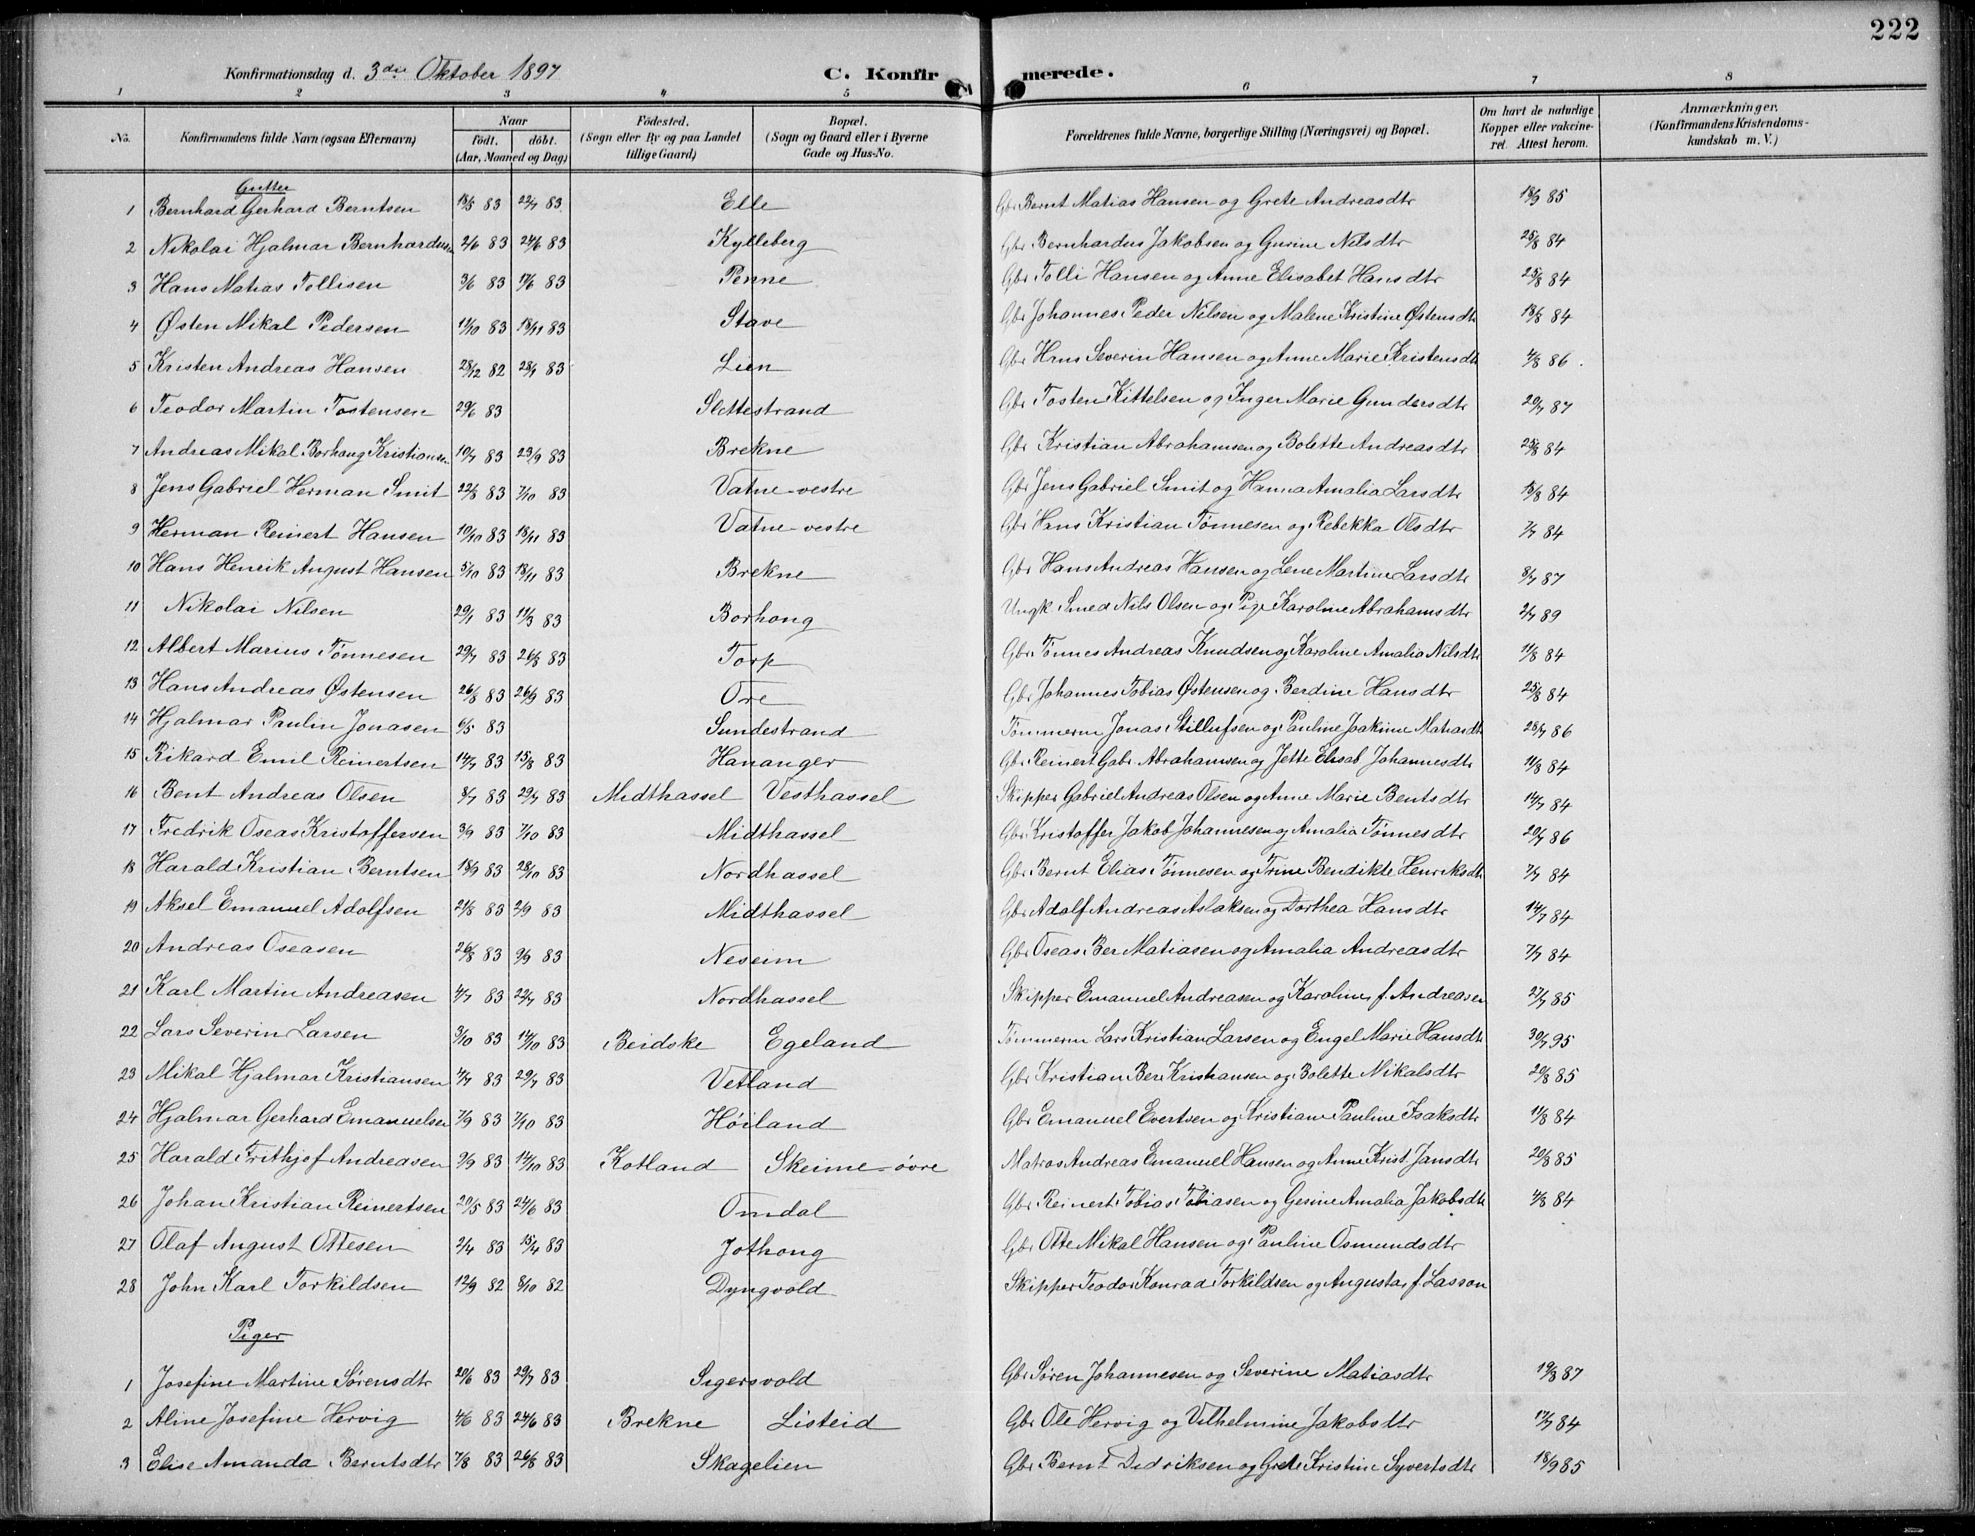 222
Konfirmationsdag d. 3die Oktober 1897 C. Konfirmerede.
1 2 3 4 5 6 7 8
No. Konfirmandens fulde Navn (ogsaa Efternavn) Naar født. døbt. (Aar, Maaned og Dag) Fødested. (Sogn eller By og paa Landet tillige Gaard) Bopæl. (Sogn og Gaard eller i Byerne Gade og Hus-No. Forældrenes fulde Navne, borgerlige Stilling (Næringsvei) og Bopæl. Om havt de naturlige Kopper eller vakcineret. Attest herom. Anmærkninger. (Konfirmandens Kristendomskundskab m. V.)
Gutter
1 Bernhard Gerhard Berntsen 83 22/7 83 Elle Gbr Bernt Matias Hansen og Grete Andreasdtr 18/9 85
2 Nikolai Hjalmar Bernhardusen 2/6 83 24/6 83 Kylleberg Gbr Bernhardus Jakobsen og Gurine Nilsdtr 25/8 84
3 Hans Matias Tollisen 3/6 83 17/6 83 Penne Gbr Tolli Hansen og Anne Elisabet Hansdtr 25/8 84
4 Østen Mikal Pedersen 11/10 83 18/11 83 Stave Gbr Johannes Peder Nilsen og Malene Kristine Østensdtr 18/8 84
5 Kristen Andreas Hansen 28/12 82 28/1 83 Lien Gbr Hans Severin Hansen og Anne Marie Kristensdtr 4/8 86
6 Teodor Martin Tostensen 29/6 83 Slettestrand Gbr Tosten Kittelsen og Inger Marie Gundersdtr 20/7 87
7 Andreas Mikal Borhaug Kristiansen 10/7 83 23/9 83 Brekne Gbr Kristian Abrahamsen og Bolette Andreasdtr 25/8 84
8 Jens Gabriel Herman Smit 22/8 83 7/10 83 Vatne-vestre Gbr Jens Gabriel Smit og Hanna Amalia Larsdtr 18/8 84
9 Herman Reinert Hansen 10/10 83 18/11 83 Vatne-vestre Gbr Hans Kristian Tønnesen og Rebekka Olsdtr 7/7 84
10 Hans Henrik August Hansen 5/10 83 18/11 83 Brekne Gbr Hans Andreas Hansen og Lene Martine Larsdtr 8/7 87
11 Nikolai Nilsen 29/1 83 11/3 83 Borhong Ungk Smed Nils Olsen og Pige Karoline Abrahamsdtr 2/7 89
12 Albert Marius Tønnesen 29/7 83 26/8 83 Torp Gbr Tønnes Andreas Knudsen og Karoline Amalia Nilsdtr 11/8 84
13 Hans Andreas Østensen 26/8 83 26/9 83 Ore Gbr Johannes Tobias Østensen og Berdine Hansdtr 25/8 84
14 Hjalmar Paulin Jonasen 6/5 83 Sundestrand Tømmerm Jonas Stillufsen og Pauline Joakime Matiasdtr 28/7 86
15 Rikard Emil Reinertsen 14/7 83 15/8 83 Hananger Gbr Reinert Gabr. Abrahamsen og Jette Elisab Johannesdtr 11/8 84
16 Bent Andreas Olsen 8/7 83 29/7 83 Midthassel Vesthassel Skipper Gabriel Andreas Olsen og Anne Marie Bentsdtr 14/7 84
17 Fredrik Oseas Kristoffersen 3/9 83 7/10 83 Midthassel Gbr Kristoffer Jakob Johannesen og Amalia Tønnesdtr 20/7 86
18 Harald Kristian Berntsen 18/9 83 28/10 83 Nordhassel Gbr Bernt Elias Tønnesen og Trine Bendikte Henriksdtr 7/7 84
19 Aksel Emanuel Adolfsen 21/8 83 2/9 83 Midthassel Gbr Adolf Andreas Aslaksen og Dorthea Hansdtr 14/7 84
20 Andreas Oseasen 26/8 83 9/9 83 Neseim Gbr Oseas Ber Matiasen og Amalia Andreasdtr 7/7 84
21 Karl Martin Andreasen 4/7 83 22/7 83 Nordhassel Skipper Emanuel Andreasen og Karoline f. Andreasen 27/7 85
22 Lars Severin Larsen 3/10 83 14/10 83 Beidske Egeland Tømmerm Lars Kristian Larsen og Engel Marie Hansdtr 30/7 95
23 Mikal Hjalmar Kristiansen 4/7 83 29/7 83 Vetland Gbr Kristian Ber Kristiansen og Bolette Nikalsdtr 20/8 85
24 Hjalmar Gerhard Emanuelsen 7/9 83 7/10 83 Høiland Gbr Emanuel Evertsen og Kristiane Pauline Isaksdtr 11/8 84
25 Harald Frithjof Andreasen 9/9 83 14/10 83 Kotland Skeime-øvre Matros Andreas Emanuel Hansen og Anne Krist. Jansdtr 20/8 85
26 Johan Kristian Reinertsen 20/5 83 24/6 83 Omdal Gbr Reinert Tobias Tobiasen og Gesine Amalia Jakobsdtr 4/8 84
27 Olaf August Ottesen 2/4 83 15/4 83 Jothong Gbr Otte Mikal Hansen og Pauline Osmundsdtr
28 John Karl Torkildsen 12/9 82 8/10 82 Dyngvold Skipper Teodor Konrad Torkildsen og Augusta f. Lassen
Piger
1 Josefine Martine Sørensdtr 20/6 83 29/7 83 Sigersvold Gbr Søren Johannesen og Severine Matiasdtr 19/8 87
2 Aline Josefine Hervig 4/6 83 24/6 83 Brekne Listeid Gbr Ole Hervig og Vilhelmine Jakobsdtr 17/7 84
3 Elise Amanda Berntsdtr 7/8 83 26/8 83 Skagelien Gbr Bernt Didriksen og Grete Kristine Syvertsdtr 18/9 85